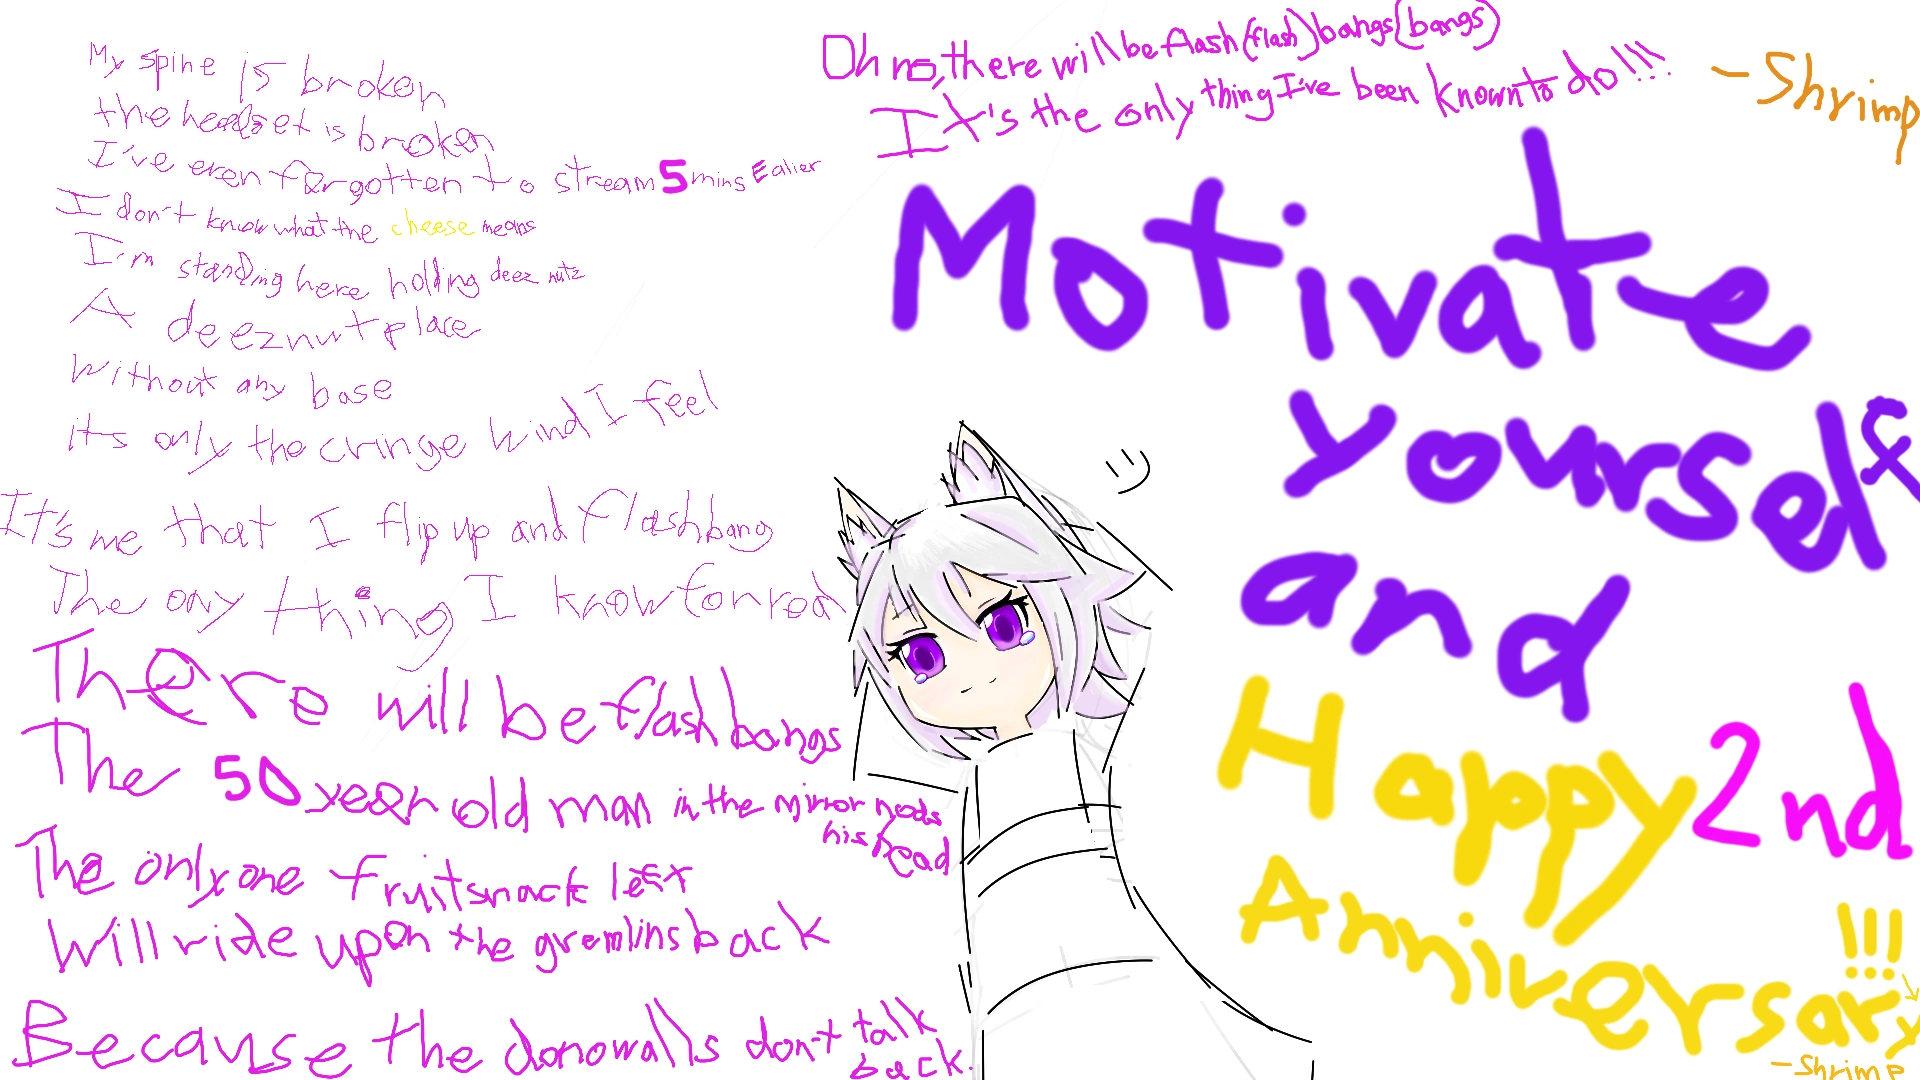 My spine is broken
the headset is broken
I've even forgotten to stream 5 mins Ealier
I don't know what the cheese means
I'm standing here holding deez nutz
A deeznut place
Without any base
its only the cringe wind I feel
It's me that I flip up and flashbang
The ony thing I know for red
There will be flashbangs
The 50 year old man in the mirror nods
his head
The only one fruitsnack left
Will ride upon the gremlins back
Because the donowalls don't talk
back.
Oh no, there will be flash (flash) bangs (bangs)
It's the only thing I've been known to do!!!
-Shrimp
Motivate
yourself
and
Happy 2nd
Anniversary!!!
-Shrimp